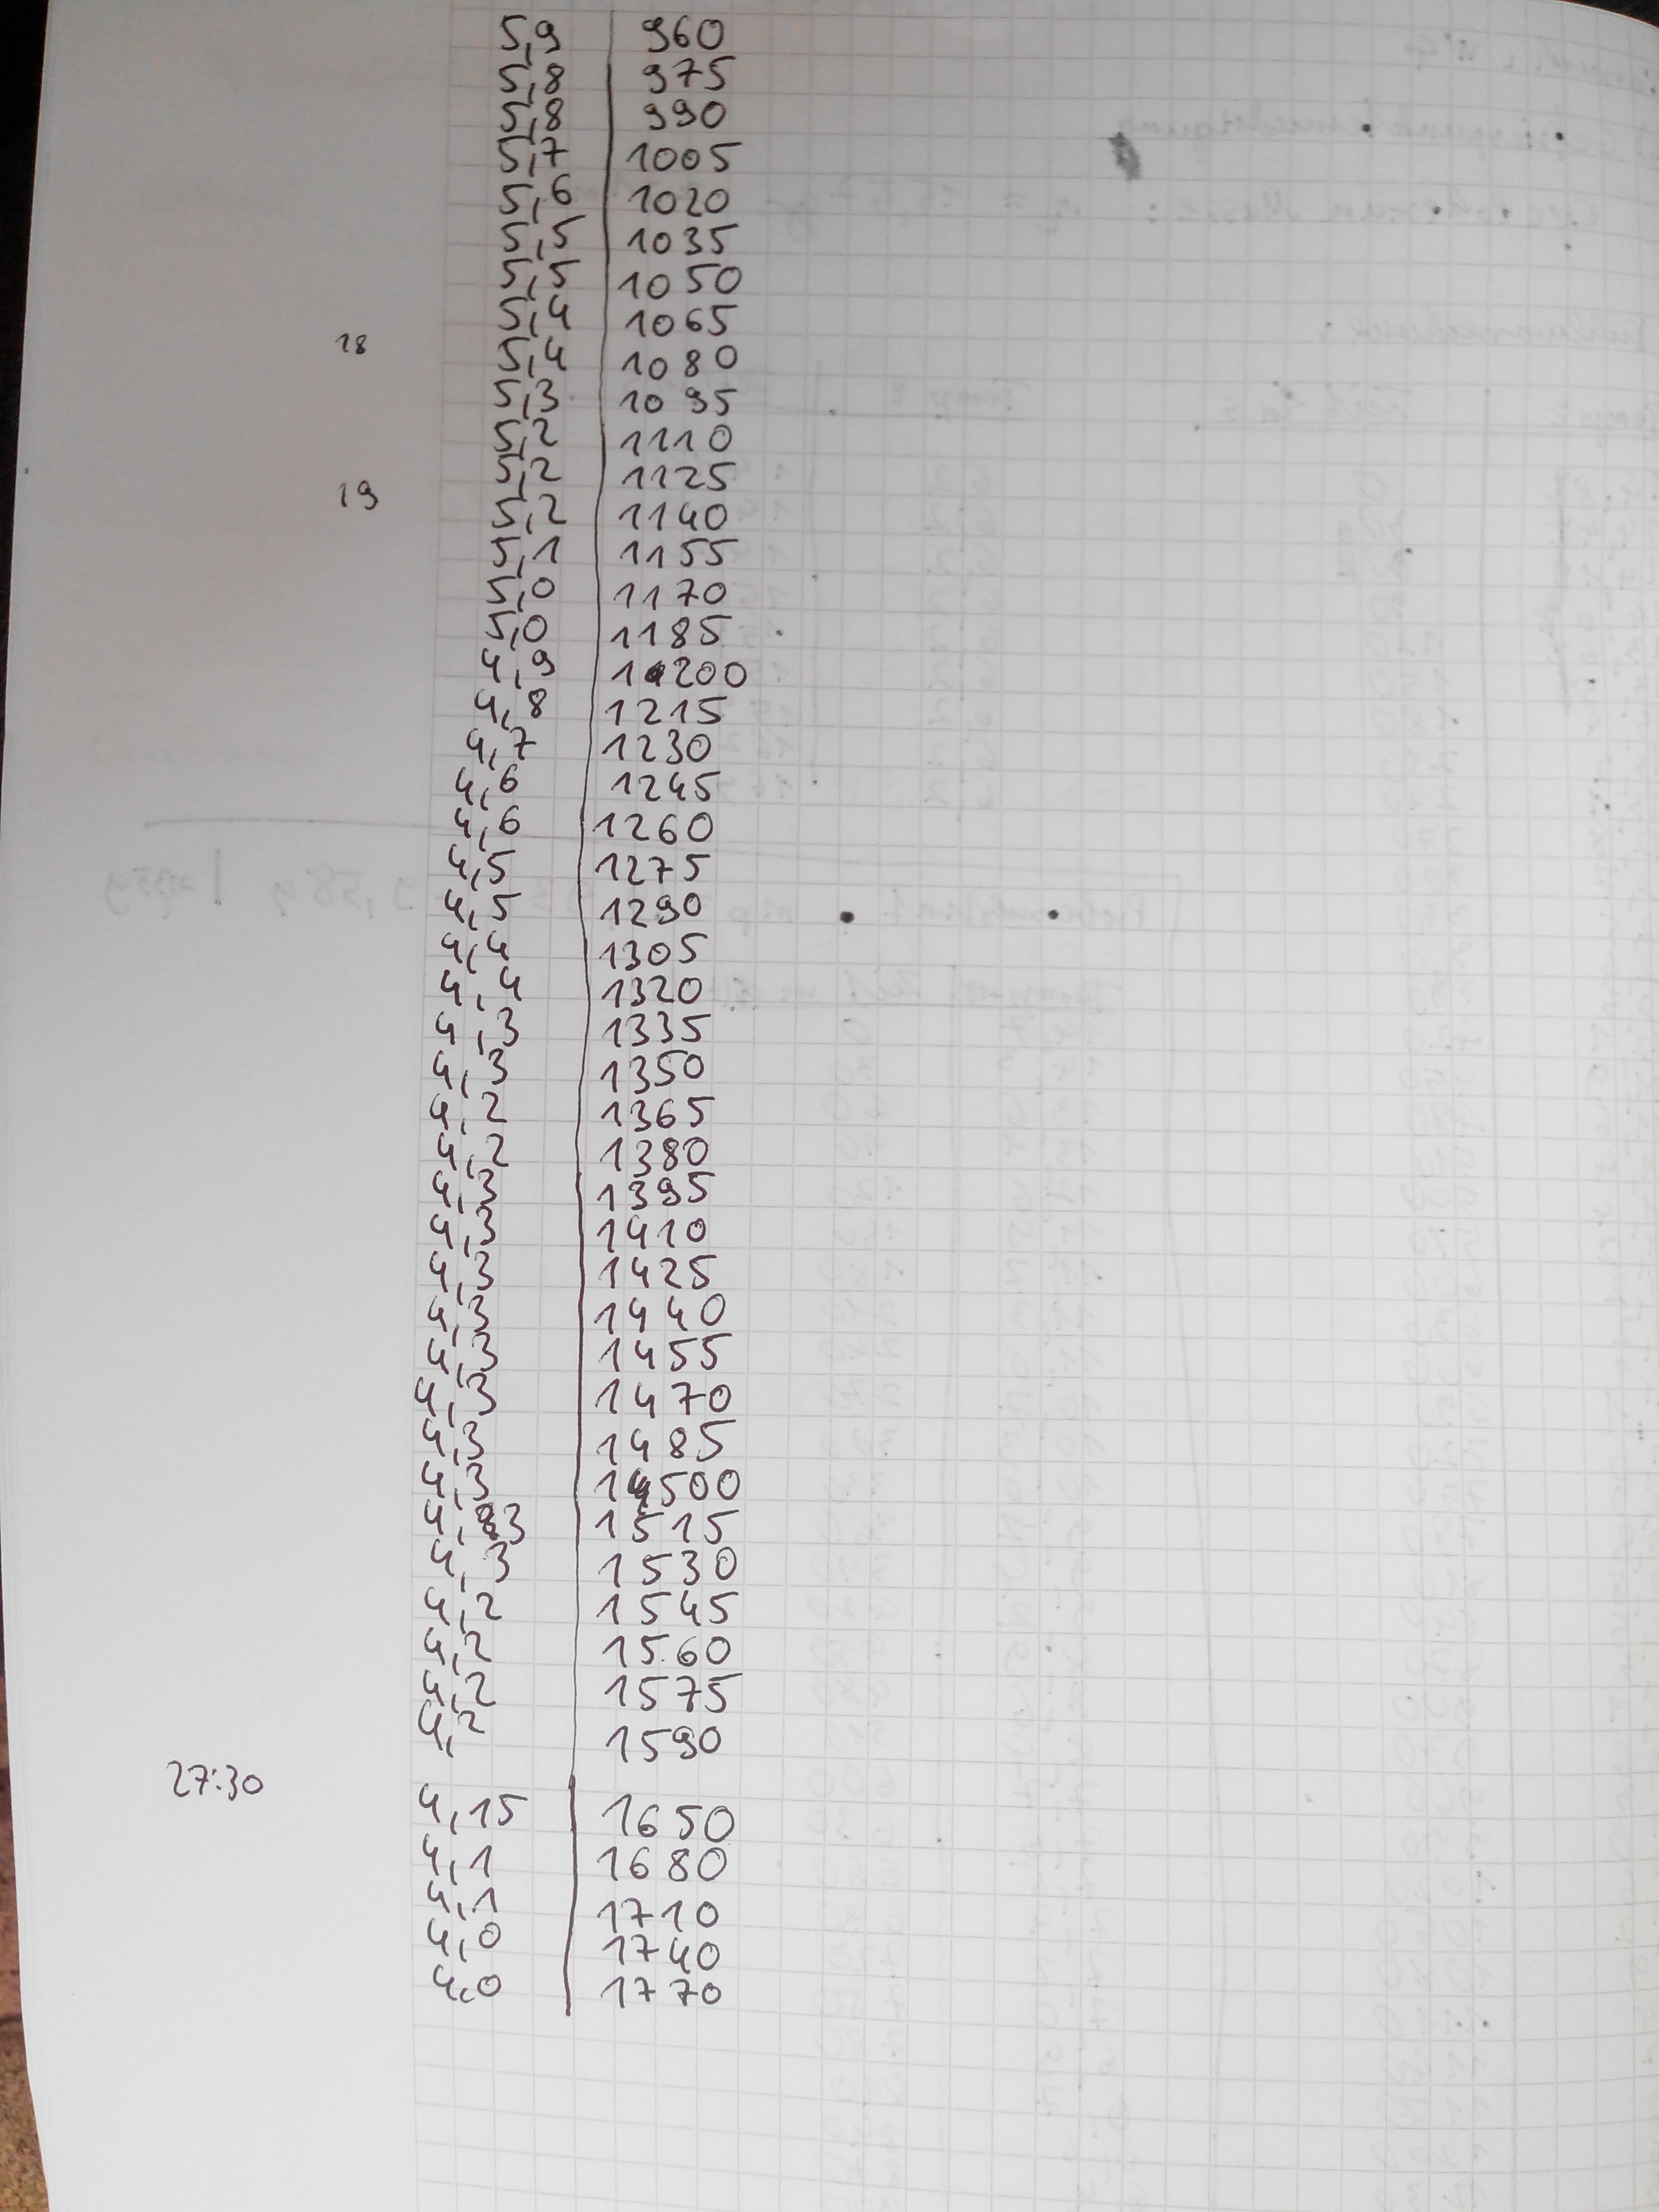 5,9 | 960
5,8 | 975
5,8 | 990
5,7 | 1005
5,6 | 1020
5,5 | 1035
5,5 | 1050
5,4 | 1065
18 5,4 | 1080
5,3 | 1095
5,2 | 1110
5,2 | 1125
19 5,2 | 1140
5,1 | 1155
5,0 | 1170
5,0 | 1185
4,9 | 1200
4,8 | 1215
4,7 | 1230
4,6 | 1245
4,6 | 1260
4,5 | 1275
4,5 | 1290
4,4 | 1305
4,4 | 1320
4,3 | 1335
4,3 | 1350
4,2 | 1365
4,2 | 1380
4,3 | 1395
4,3 | 1410
4,3 | 1425
4,3 | 1440
4,3 | 1455
4,3 | 1470
4,3 | 1485
4,3 | 1500
4,3 | 1515
4,3 | 1530
4,2 | 1545
4,2 | 1560
4,2 | 1575
4,2 | 1590
27:30
4,15 | 1650
4,1 | 1680
4,1 | 1710
4,0 | 1740
4,0 | 1770